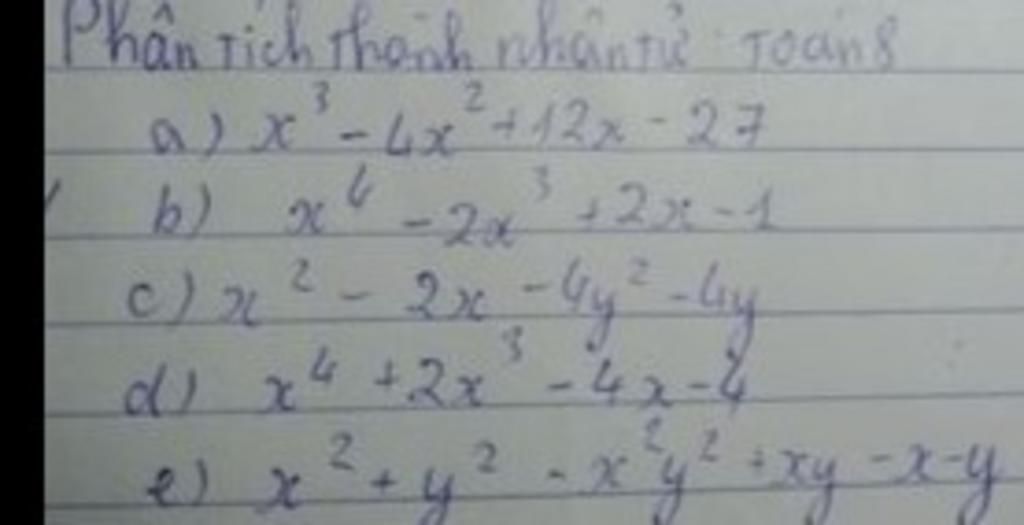 Phân tích thành nhân tử Toán 8
a) x³ - 4x² + 12x - 27
b) x⁴ - 2x³ + 2x - 1
c) x² - 2x - 4y² - 4y
d) x⁴ + 2x³ - 4x - 4
e) x² + y² - x²y² + xy - x - y